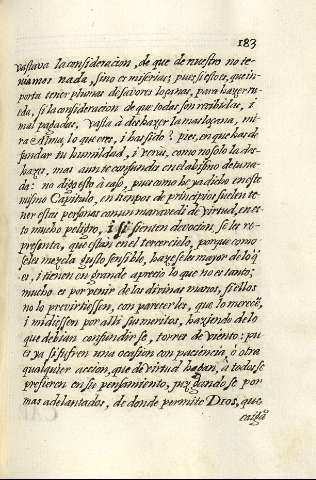 183
vastava la consideracion, de que de nuestro no te-
niamos nada, sino es miserias; pues si esto es, que im-
porta tener plumas de favores para hacer
si la consideracion de que todas son recibidas, i
mal pagadas, vasta à deshazer la mas loçana, mi-
ra Alma, lo que eres, i has sido? pues, en que has de
fundar tu humildad, i verás, como no solo la des-
haze, mas aun te confundis en el abismo de tu na-
da: no digo esto à caso, pues como he ya dicho en este
mismo Capitulo, en tiempos de principios suelen te-
ner estas personas con un maravedi de virtud, en es-
to mucho peligro, i si sienten devocion, se les re-
presenta, que están en el tercer cielo, porque como
se les mezcla gusto sensible, hazeseles mayor de lo q̃
es, i tienen en grande aprecio lo que no es tanto;
mucho es por venir de las divinas manos, si ellos
no lo previrtiessen, con parecerles, que lo merecẽ,
i midiessen por alli sus meritos, haziendo de lo
que debian confundirse, torres de viento: pu-
es ya si sufren una ocasion con paciencia, ò otra
qualquier accion, que de virtud hagan, à todos se
prefieren en su pensamiento, juzgandose por
mas adelantados, de donde permite Dios, que
caigã